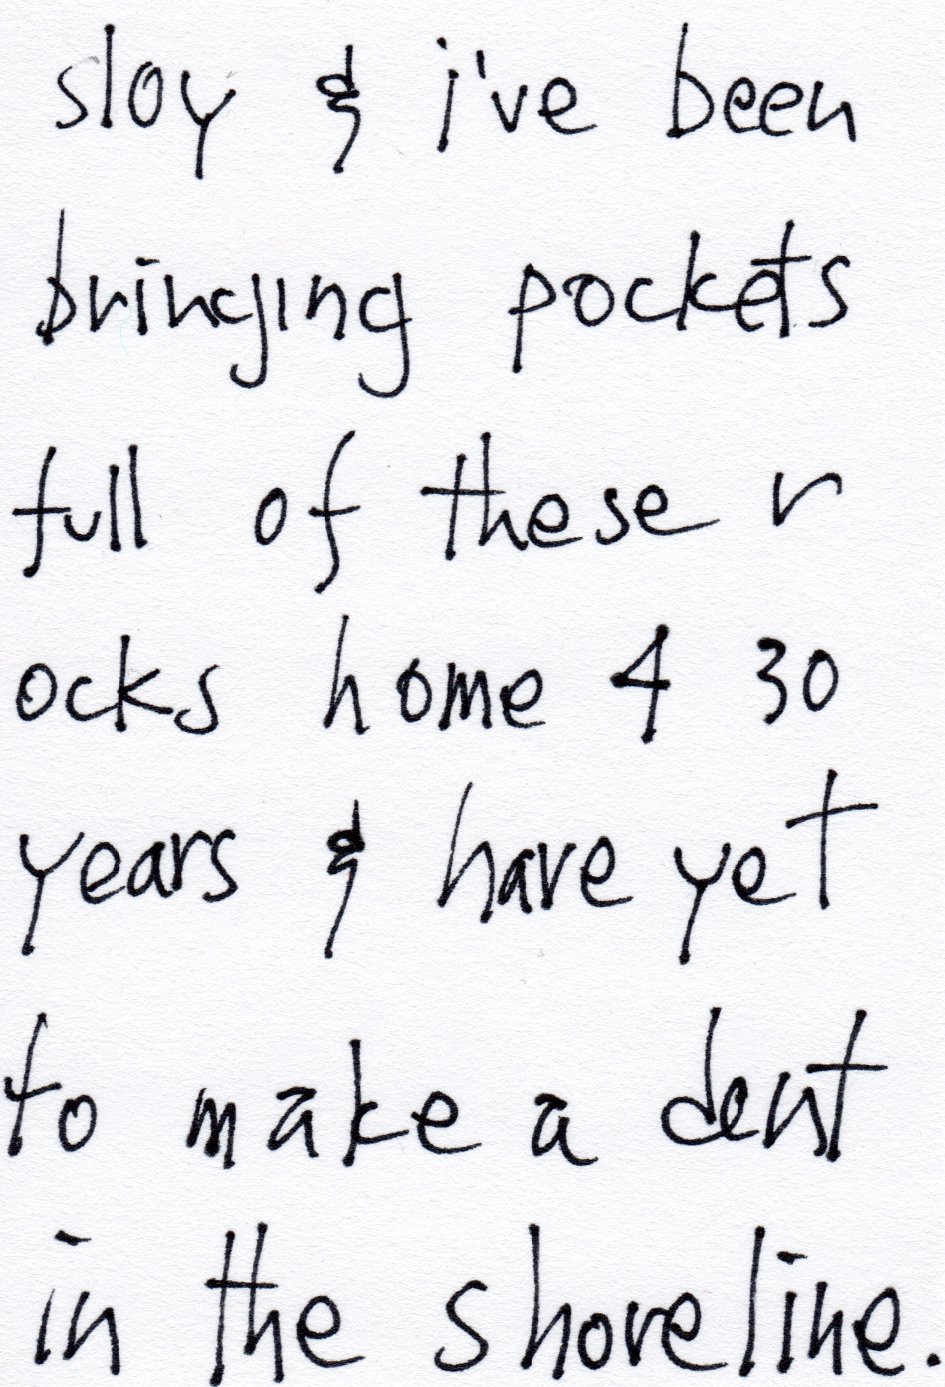 sloy & i've been
bringing pockets
full of these r
ocks home 4 30
years & have yet
to make a dent
in the shoreline.